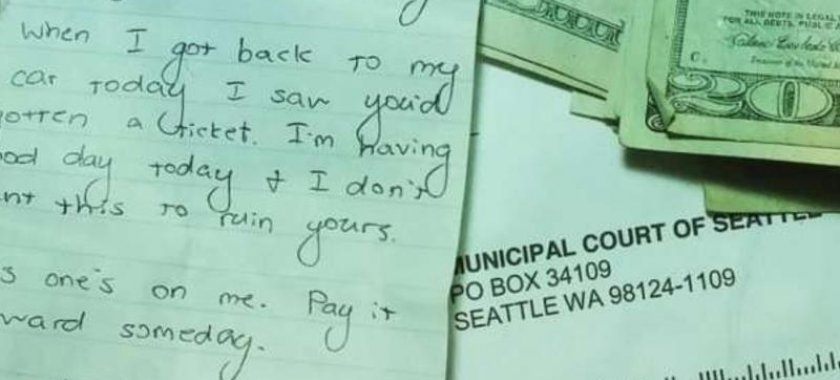 When I got back to my
car today I saw you'd
otten a ticket. I'm having
ood day today & I don't
nt this to ruin yours.
s one's on me. Pay it
ward someday.
THIS NOTE IS LEGAL
FOR ALL DEBTS, PUBLIC A
20
MUNICIPAL COURT OF SEATTLE
PO BOX 34109
SEATTLE WA 98124-1109